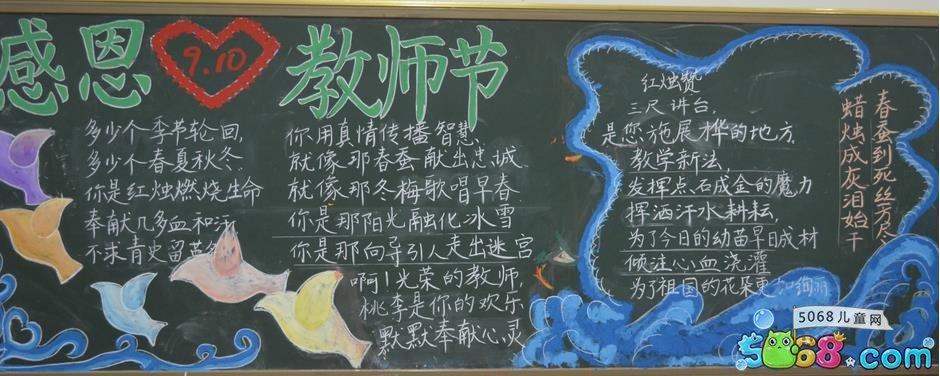 感恩
9.10
教师节
多少个季节轮回,
多少个春夏秋冬.
你是红烛燃烧生命
奉献几多血和汗
不求青史留英
你用真情传播智慧,
就像那春蚕献出忠诚
就像那冬梅歌唱早春
你是那阳光融化冰雪
你是那向导引人走出迷宫
啊!光荣的教师,
桃李是你的欢乐
默默奉献心灵
红烛赞
三尺讲台,
是您施展桦的地方,
教学新法
发挥点石成金的魔力
挥洒汗水耕耘,
为了今日的幼苗早日成材
倾注心血浇灌
为了祖国的花朵更加绚丽
春蚕到死丝方尽
蜡烛成灰泪始干
5068儿童网
5068.com